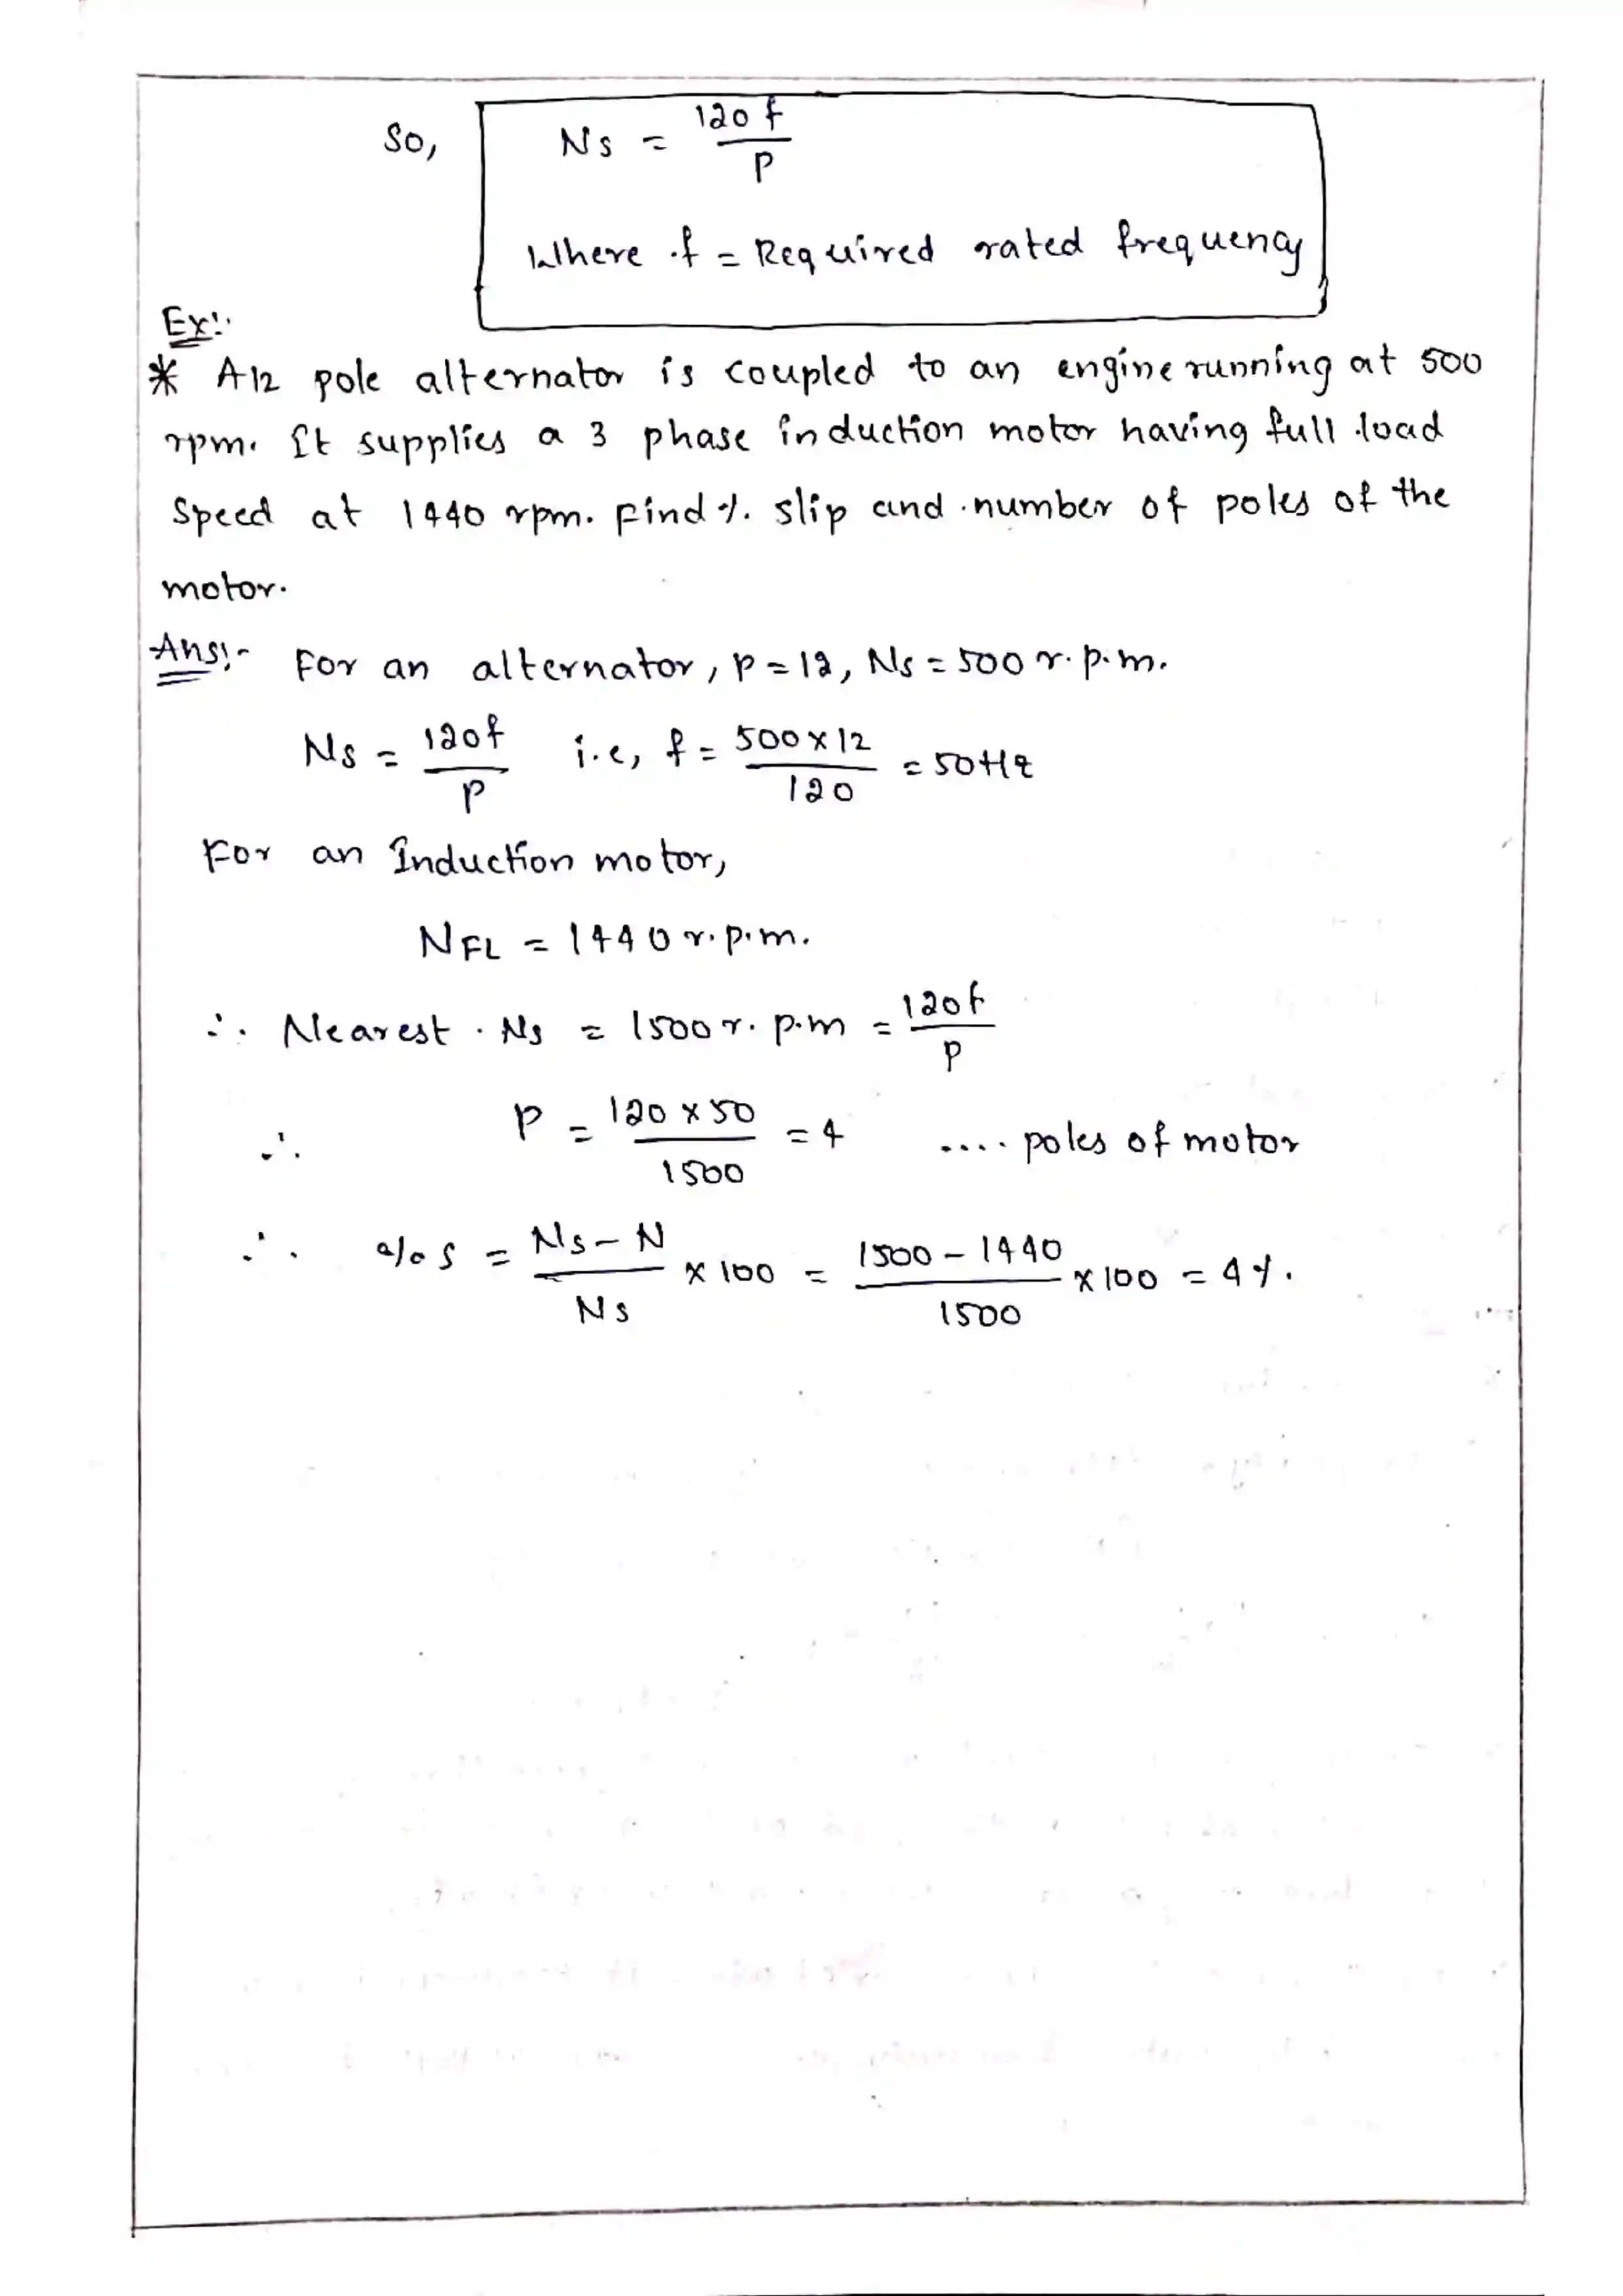 So, Ns = 120f / P
Where f = Required rated frequency
Ex:-
* A 12 pole alternator is coupled to an engine running at 500
rpm. It supplies a 3 phase induction motor having full load
Speed at 1440 rpm. Find % slip and number of poles of the
motor.
Ans:- For an alternator, P = 12, Ns = 500 r.p.m.
Ns = 120f / P i.e, f = 500 x 12 / 120 = 50Hz
For an Induction motor,
NFL = 1440 r.p.m.
∴ Nearest Ns = 1500 r.p.m = 120f / P
∴ P = 120 x 50 / 1500 = 4 .... poles of motor
∴ % S = Ns - N / Ns x 100 = 1500 - 1440 / 1500 x 100 = 4%.